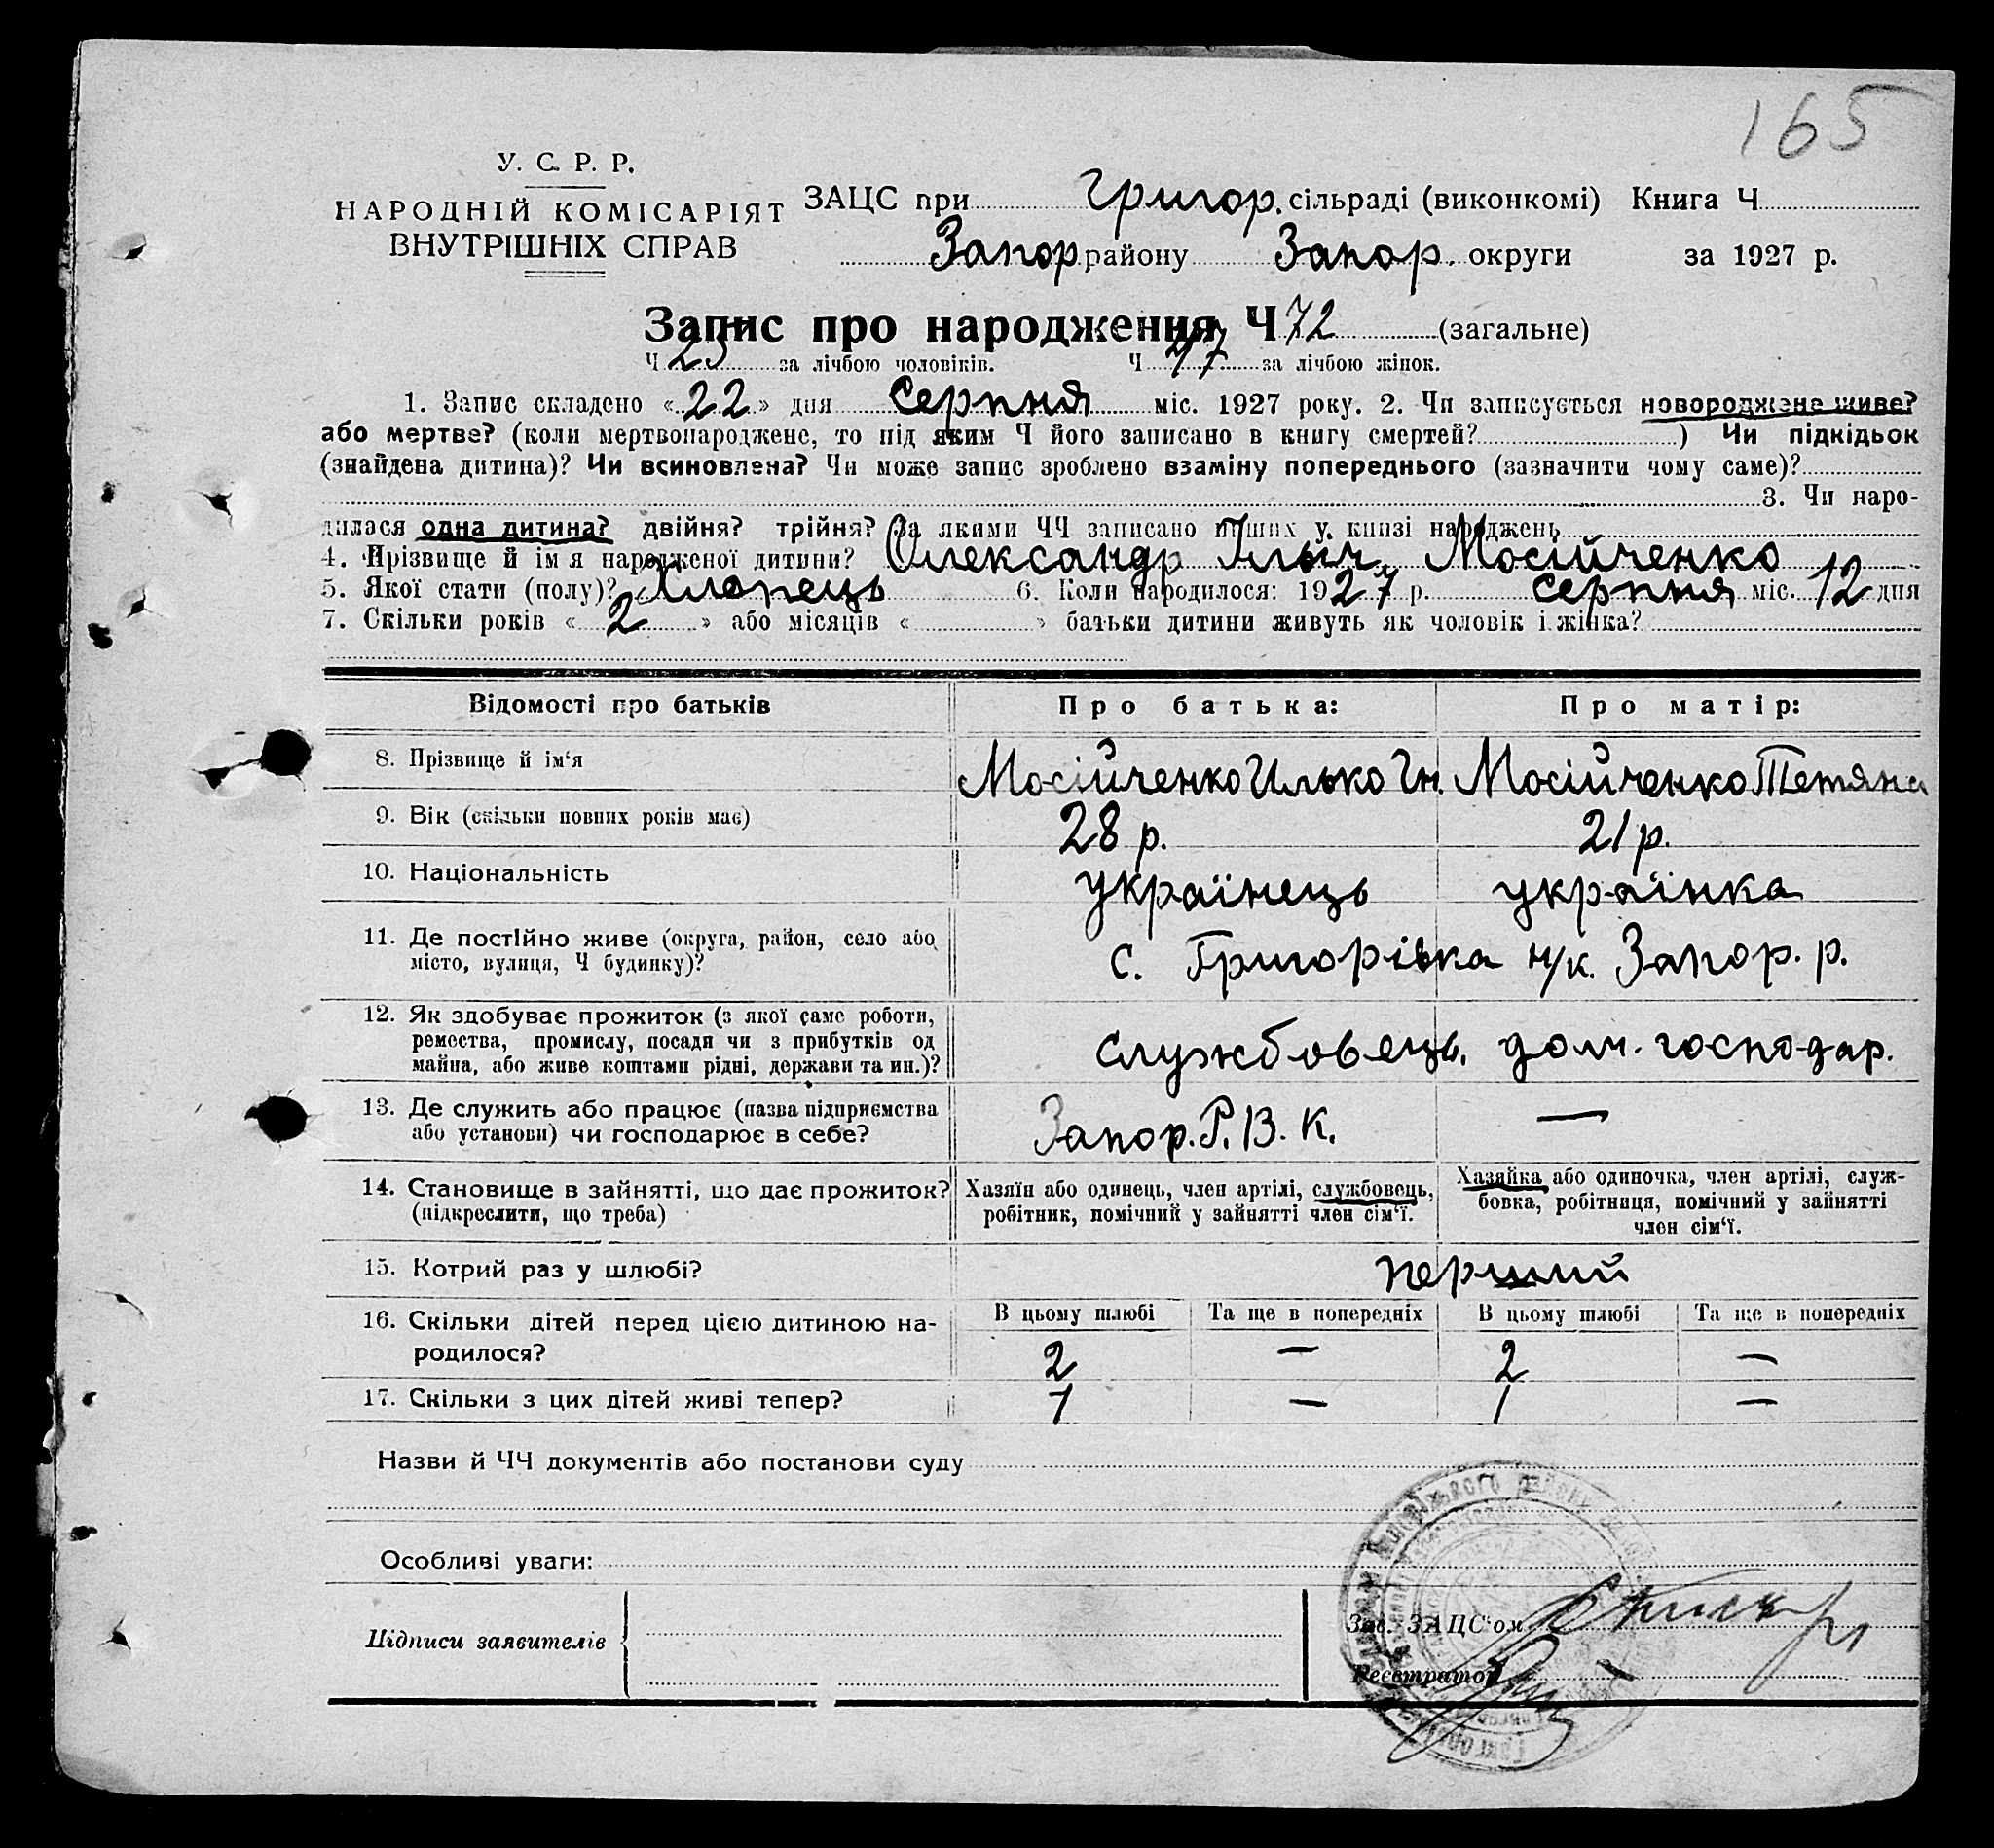 165
У. С. Р. Р.
НАРОДНІЙ КОМІСАРІЯТ
ВНУТРІШНІХ СПРАВ
ЗАЦС при Григор. сільраді (виконкомі) Книга Ч
Запор району Запор. округи за 1927 р.
Запис про народження Ч 72 (загальне)
Ч 25 за лічбою чоловіків. Ч 47 за лічбою жінок.
1. Запис складено « 22 » дня Серпня міс. 1927 року. 2. Чи записується новороджене живе?
або мертве? (коли мертвонароджене, то під яким Ч його записано в книгу смертей? ) Чи підкідьок
(знайдена дитина)? Чи всиновлена? Чи може запис зроблено взаміну попереднього (зазначити чому саме)?
3. Чи наро-
дилася одна дитина? двійня? трійня? За якими ЧЧ записано інших у книзі народжень
4. Прізвище й ім'я народженої дитини? Олександр Ільіч Мосійченко
5. Якої стати (полу)? Хлопець 6. Коли народилося: 1927 р. серпня міс. 12 дня
7. Скільки років « 2 » або місяців « » батьки дитини живуть як чоловік і жінка?
Відомості про батьків Про батька: Про матір:
8. Прізвище й ім'я Мосійченко Илько Гн. Мосійченко Тетяна
9. Вік (скільки повних років має) 28 р. 21 р.
10. Національність українець українка
11. Де постійно живе (округа, район, село або
місто, вулиця, Ч будинку)? с. Григорівка н/к. Запор. р.
12. Як здобуває прожиток (з якої саме роботи,
ремества, промислу, посади чи з прибутків од
майна, або живе коштами рідні, держави та ин.)? службовець. дом. господар.
13. Де служить або працює (назва підприємства
або установи) чи господарює в себе? Запор. Р. В. К. —
14. Становище в зайнятті, що дає прожиток? Хазяїн або одинець, член артілі, службовець, Хазяйка або одиночка, член артілі, служ-
(підкреслити, що треба) робітник, помічний у зайнятті член сім'ї. бовка, робітниця, помічний у зайнятті
член сім'ї.
15. Котрий раз у шлюбі? перший
16. Скільки дітей перед цією дитиною на- В цьому шлюбі Та ще в попередніх В цьому шлюбі Та ще в попередніх
родилося? 2 — 2 —
17. Скільки з цих дітей живі тепер? 1 — 1 —
Назви й ЧЧ документів або постанови суду
Особливі уваги:
Підписи заявителів
Зав. ЗАЦС'ом
Реєстратор